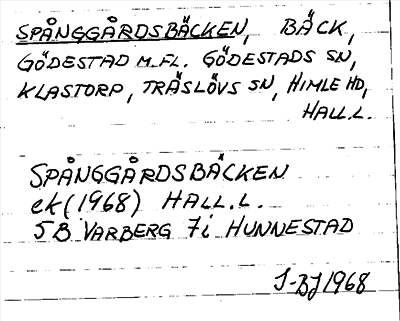 SPÅNGGÅRDSBÄCKEN, BÄCK,
GÖDESTAD M.FL. GÖDESTADS SN,
KLASTORP, TRÄSLÖVS SN, HIMLE HD,
HALL.L.
SPÅNGGÅRDSBÄCKEN
ek (1968) HALL.L.
5B VARBERG 7i HUNNESTAD
S-BJ 1968